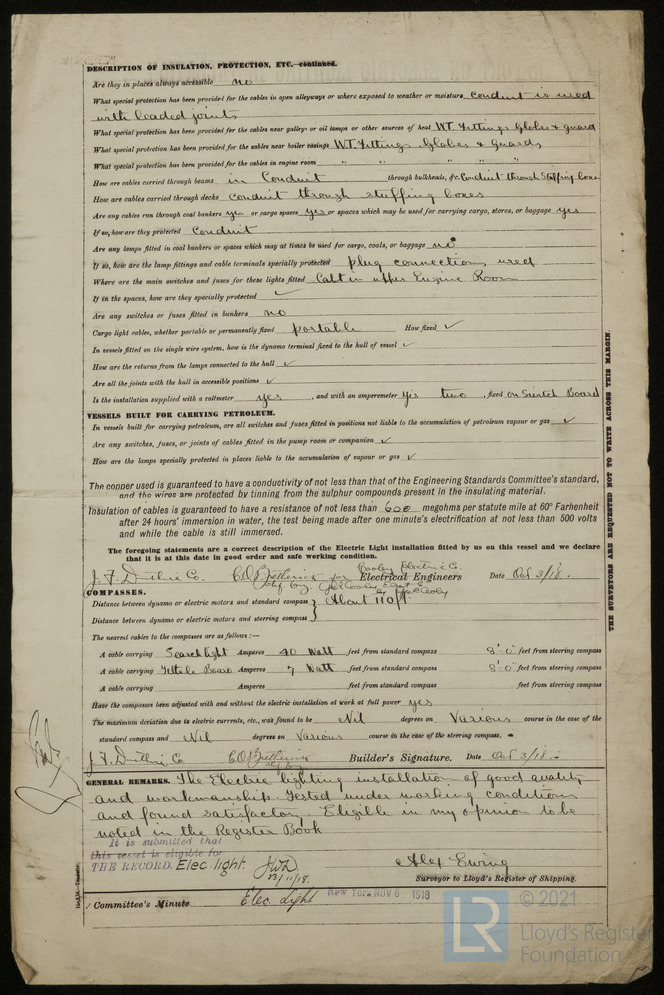 DESCRIPTION OF INSULATION, PROTECTION, ETC.—continued.
Are they in places always accessible no
What special protection has been provided for the cables in open alleyways or where exposed to weather or moisture conduit is used
with leaded joints
What special protection has been provided for the cables near galleys or oil lamps or other sources of heat W.T. Fittings Globes & guard
What special protection has been provided for the cables near boiler casings W.T. Fittings, Globes & Guards
What special protection has been provided for the cables in engine room " " " " "
How are cables carried through beams in Conduit through bulkheads, &c. Conduit through Stuffing boxes
How are cables carried through decks conduit through stuffing boxes
Are any cables run through coal bunkers yes or cargo spaces yes or spaces which may be used for carrying cargo, stores, or baggage yes
If so, how are they protected conduit
Are any lamps fitted in coal bunkers or spaces which may at times be used for cargo, coals, or baggage no
If so, how are the lamp fittings and cable terminals specially protected plug connections used
Where are the main switches and fuses for these lights fitted Cabt in upper Engine Room
If in the spaces, how are they specially protected ✓
Are any switches or fuses fitted in bunkers no
Cargo light cables, whether portable or permanently fixed portable How fixed ✓
In vessels fitted on the single wire system, how is the dynamo terminal fixed to the hull of vessel ✓
How are the returns from the lamps connected to the hull ✓
Are all the joints with the hull in accessible positions ✓
Is the installation supplied with a voltmeter yes , and with an amperemeter yes two , fixed on Switch Board
VESSELS BUILT FOR CARRYING PETROLEUM.
In vessels built for carrying petroleum, are all switches and fuses fitted in positions not liable to the accumulation of petroleum vapour or gas ✓
Are any switches, fuses, or joints of cables fitted in the pump room or companion ✓
How are the lamps specially protected in places liable to the accumulation of vapour or gas ✓
The copper used is guaranteed to have a conductivity of not less than that of the Engineering Standards Committee's standard,
and the wires are protected by tinning from the sulphur compounds present in the insulating material.
Insulation of cables is guaranteed to have a resistance of not less than 600 megohms per statute mile at 60° Farhenheit
after 24 hours' immersion in water, the test being made after one minute's electrification at not less than 500 volts
and while the cable is still immersed.
The foregoing statements are a correct description of the Electric Light installation fitted by us on this vessel and we declare
that it is at this date in good order and safe working condition.
J. F. Duthie Co. for Electric Co.
Electrical Engineers Date Oct 3/18.
COMPASSES.
Distance between dynamo or electric motors and standard compass } About 110 ft
Distance between dynamo or electric motors and steering compass
The nearest cables to the compasses are as follows:—
A cable carrying Searchlight Amperes 40 Watt feet from standard compass 8'-0" feet from steering compass
A cable carrying Telltale Board Amperes 7 Watt feet from standard compass 8'-0" feet from steering compass
A cable carrying Amperes feet from standard compass feet from steering compass
Have the compasses been adjusted with and without the electric installation at work at full power yes
The maximum deviation due to electric currents, etc., was found to be Nil degrees on Various course in the case of the
standard compass and Nil degrees on Various course in the case of the steering compass.
J. F. Duthie Co Builder's Signature. Date Oct 3/18.
GENERAL REMARKS. The Electric lighting installation of good quality
and workmanship. Tested under working conditions
and found satisfactory. Eligible in my opinion to be
noted in the Register Book
It is submitted that
this vessel is eligible for
THE RECORD. Elec light. 23/11/18.
Alex Ewing
Surveyor to Lloyd's Register of Shipping.
Committee's Minute New York NOV 6 1918
Elec. Light
THE SURVEYORS ARE REQUESTED NOT TO WRITE ACROSS THIS MARGIN.
LR
© 2021
Lloyd's Register
Foundation